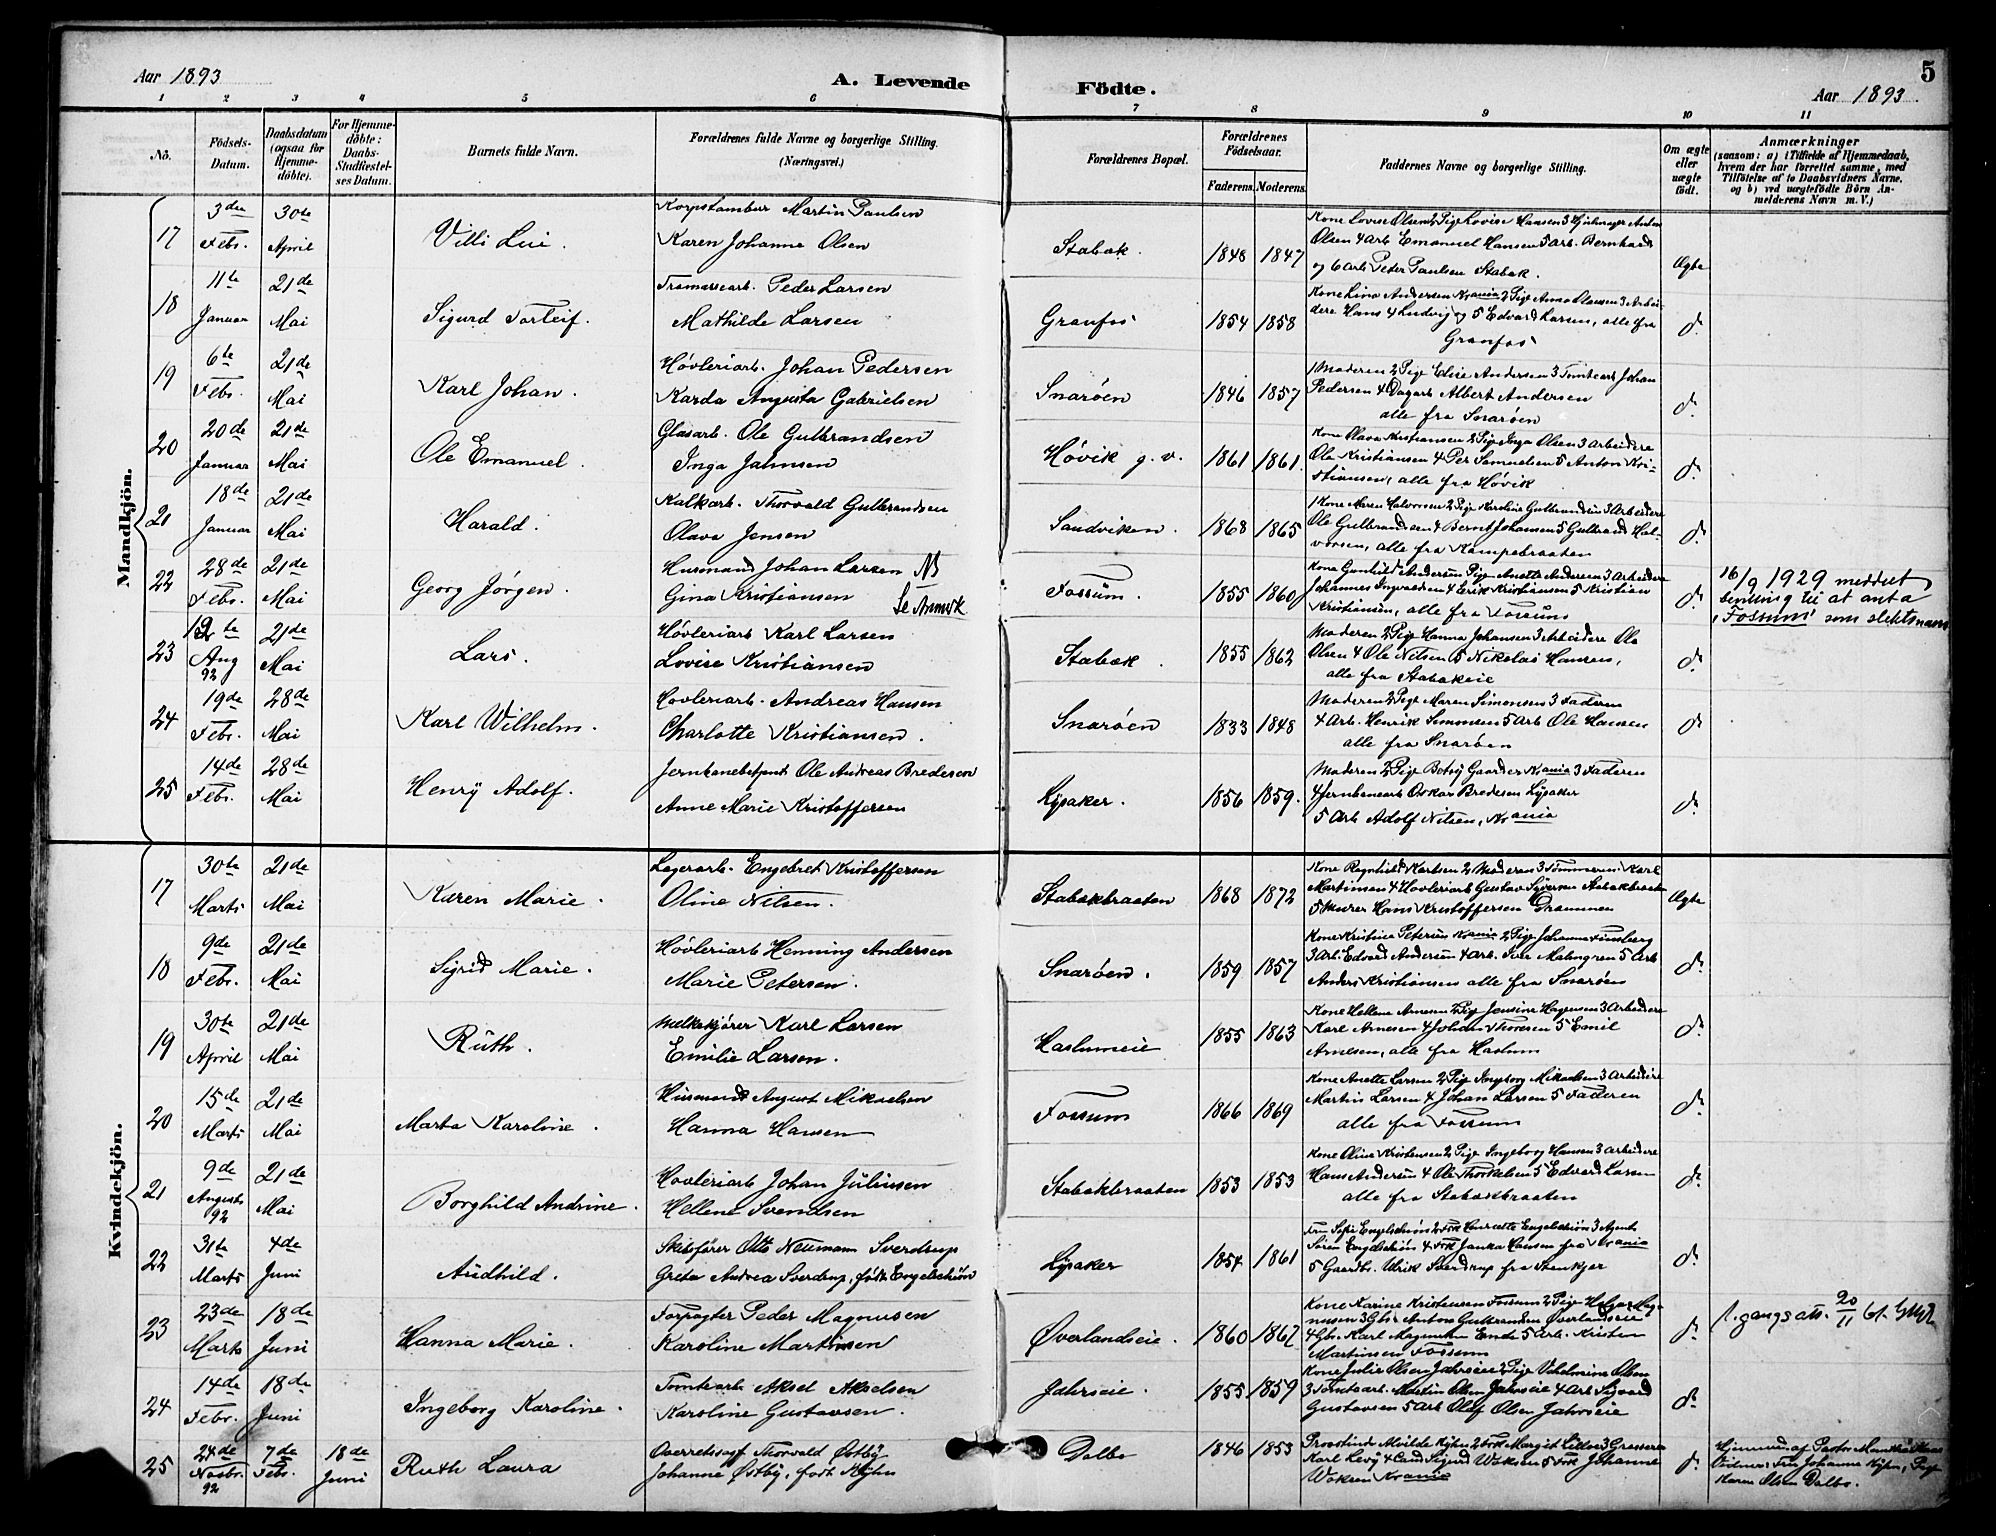 Aar 1893
A. Levende Födte.
5
Aar 1893
1 2 3 4 5 6 7 8 9 10 11
No.
Födsels-Datum.
Daabsdatum (ogsaa for Hjemme-döbte).
For Hjemme-döbte: Daabs-Stadfæstel-ses Datum.
Barnets fulde Navn.
Forældrenes fulde Navne og borgerlige Stilling.
(Næringsvei.)
Forældrenes Bopæl.
Forældrenes Födselsaar.
Faderens. Moderens.
Faddernes Navne og borgerlige Stilling.
Om ægte eller uægte födt.
Anmærkninger
(saasom: a) i Tilfælde af Hjemmedaab, hvem der har forrettet samme, med Tilföielse af to Daabsvidners Navne, og b) ved uægtefödte Börn An-melderens Navn m. V.)
Mandkjön.
17 3die Febr. 30te April Villi Lui. Korpstambur Martin Paulsen
Karen Johanne Olsen Stabæk. 1848 1847 Ægte
Kone Lovise Olsen 2 Pige Lovise Hansen 3 Anton
Olsen 4 Arb. Emanuel Hansen 5 Arb. Bernhard
og 6 Arb. Peter Paulsen Stabæk.
18 11te Januar 21de Mai Sigurd Torleif. Peder Larsen
Mathilde Larsen Granfos 1854 1858 do
Kone Lina Andersen Krania 2 Pige Anna Olausen 3 Arbei-
dere Hans 4 Ludvig og 5 Edvard Larsen, alle fra
Granfos
19 6te Febr. 21de Mai Karl Johan. Høvleriarb. Johan Pedersen
Karda Augusta Gabrielsen Snarøen 1846 1857 do
1 Moderen 2 Pige Elise Andersen 3 Tomtearb. Johan
Pedersen 4 Dagarb. Albert Andersen
alle fra Snarøen
20 20de Januar 21de Mai Ole Emanuel. Glasarb. Ole Gulbrandsen
Inga Jahnsen Høvik g. v. 1861 1861. do
Kone Olava Kristiansen 2 Pige Inga Olsen 3 Arbeidere
Ole Kristiansen 4 Per Samuelsen 5 Anton Kri-
stiansen, alle fra Høvik
21 18de Januar 21de Mai Harald. Kalkarb. Thorvald Gulbrandsen
Olava Jensen Sandviken. 1868 1865 do
1 Kone Maren Halvorsen 2 Pige Karoline Gulbrandsen 3 Arbeidere
Ole Gulbrandsen 4 Bernt Johansen 5 Gulbrand Hal-
vorsen, alle fra Kampebraaten
22 28de Febr. 21de Mai Georg Jørgen. Husmand Johan Larsen NB
Gina Kristiansen Se Anmerk Fossum. 1855 1860 do
Kone Gunhild Andersen Pige Anette Andersen 3 Arbeidere
Johannes Ingvaldsen 4 Erik Kristiansen 5 Kristian
Kristiansen, alle fra Fossum
16/9 1929 meddelt
bevilling til at anta
"Fossum" som slektsnavn
23 12te Aug 92 21de Mai Lars. Høvleriarb Karl Larsen
Lovise Kristiansen Stabæk. 1855 1862 do
Moderen 2 Pige Hanna Johansen 3 Arbeidere Ole
Olsen 4 Ole Nilsen 5 Nikolai Hansen,
alle fra Stabækeie
24 19de Febr. 28de Mai Karl Wilhelm. Høvleriarb. Andreas Hansen
Charlotte Kristiansen. Snarøen 1833 1848 do
Moderen 2 Pige Maren Simonsen 3 Faderen
4 Arb. Henrik Simonsen 5 Arb Ole Hansen
alle fra Snarøen
25 14de Febr. 28de Mai Henry Adolf. Jernbanebetjent Ole Andreas Bredesen
Anne Marie Kristoffersen Lysaker. 1856 1859. do
Moderen 2 Pige Betsy Gaarder Krania 3 Faderen
4 Jernbanearb Oskar Bredesen Lysaker
5 Arb Adolf Nilsen, Krania
Kvindekjön.
17 30te Marts 21de Mai Karen Marie. Lagerarb. Engebret Kristoffersen
Oline Nilsen. Stabækbraaten 1868 1872 Ægte
Kone Ragnhild Karlsen 2 Moderen 3 Tømmerm. Karl
Martinsen 4 Høvleriarb Gustav Syversen Stabækbraaten
5 Murer Hans Kristoffersen Drammen
18 9de Febr. 21de Mai Sigrid Marie. Høvleriarb Henning Andersen
Marie Petersen. Snarøen. 1859 1857 do
Kone Kristine Petersen Krania 2 Pige Johanne Finsberg
3 Arb. Edvard Andersen 4 Arb. Iver Malmgren 5 Arb
Anders Kristiansen alle fra Snarøen
19 30te April 21de Mai Ruth. Melkekjører Karl Larsen
Emilie Larsen. Haslumeie 1855 1863 do
Kone Hellene Arnesen 2 Pige Jensine Hagensen 3 Arbeidere
Karl Arnesen 4 Johan Thoresen 5 Emil
Arnesen, alle fra Haslum
20 15de Marts 21de Mai Marta Karoline. Husmand August Mikaelsen
Hanna Hansen Fossum 1866 1869 do
Kone Anette Larsen 2 Pige Ingeborg Mikaelsen 3 Arbeidere
Martin Larsen 4 Johan Larsen 5 Faderen
alle fra Fossum
21 9de Augusts 92 21de Mai Borghild Andrine. Høvleriarb Johan Juliusen
Hellene Svendsen Stabækbraaten 1853 1853 do
Kone Oline Kristensen 2 Pige Ingeborg Hansen 3 Arbeidere
Hans Andersen 4 Ole Thorkelsen 5 Edvard Larsen
alle fra Stabækbraaten
22 31te Marts 4de Juni Audhild. Skibsfører Otto Neumann Sverdrup
Greta Andrea Sverdrup, født Engelschiøn Lysaker 1854 1861 do
Fru Engelschiøn 2 Frk Henriette Engelschiøn 3 Agent
Søren Engelschiøn 4 Frk Janka Hansen fra Krania
5 Gaardbr. Ulrik Sverdrup fra Stenkjer
23 23de Marts 18de Juni Hanna Marie. Forpagter Peder Magnusen
Karoline Martinsen Øverlandseie. 1860 1867 do
Kone Karine Kristensen Fossum 2 Pige Helga Mag-
nusen 3 Gbr. Anton Gulbrandsen Øverlandseie
4 Gbr. Karl Magnusen Ende 5 Arb. Kristen
Martinsen Fossum
1. gangs att. 20/11 61.
24 14de Febr. 18de Juni Ingeborg Karoline. Tomtearb Aksel Akselsen
Karoline Gustavsen. Jahrseie. 1855 1859 do
Kone Julie Olsen Jahrseie 2 Pige Vilhelmine Olsen
3 Tomtearb. Martin Olsen Jahrseie 4 Arb Sigvard
Gustavsen 5 Arb Olaf Olsen Jahrseie
25 24de Novbr. 92 7de Febr. 18de Juni Ruth Laura Overretssagf Thorvald Østby
Johanne Østby, født Kyhn Dalbo 1846 1853 do
Provstinde Mvilde Kyhn 2 Frk Margit Lilloe 3 Grosserer
Karl Levy 4 Cand Sigurd Woxsen 5 Frk Johanne
Woxsen Krania
Hjemmed. af Pastor
Vidner: Fru Johanne Kyhn, Pige
Karen Olsen Dalbo.